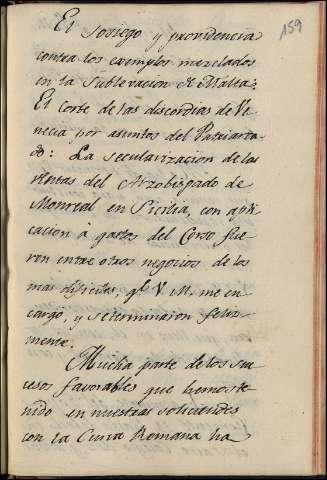 159
El sosiego y providencia
contra los exemplos mezclados
en la sublevacion de Malta:
El corte de las discordias de Ve
necia por asuntos del Patriarca
do: La secularizacion de las
rentas del Arzobispado de
Monreal en Sicilia, con apli
cacion à gastos del Corso fue
ron entre otros negocios de los
mas dificiles, qe V. M. me en
cargó, y se terminaron feliz-
mente.
Mucha parte de los su
cesos favorables que hemos te
nido en nuestras solicitudes
con la Curia Romana ha